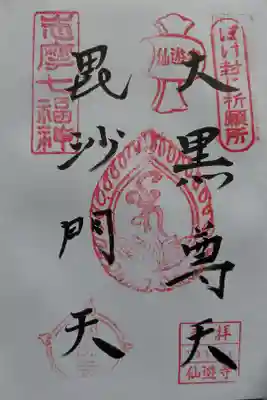 ぼけ封じ祈願所
大黒尊天
毘沙門天
志摩七福神
仙遊
奉拝
仙遊寺